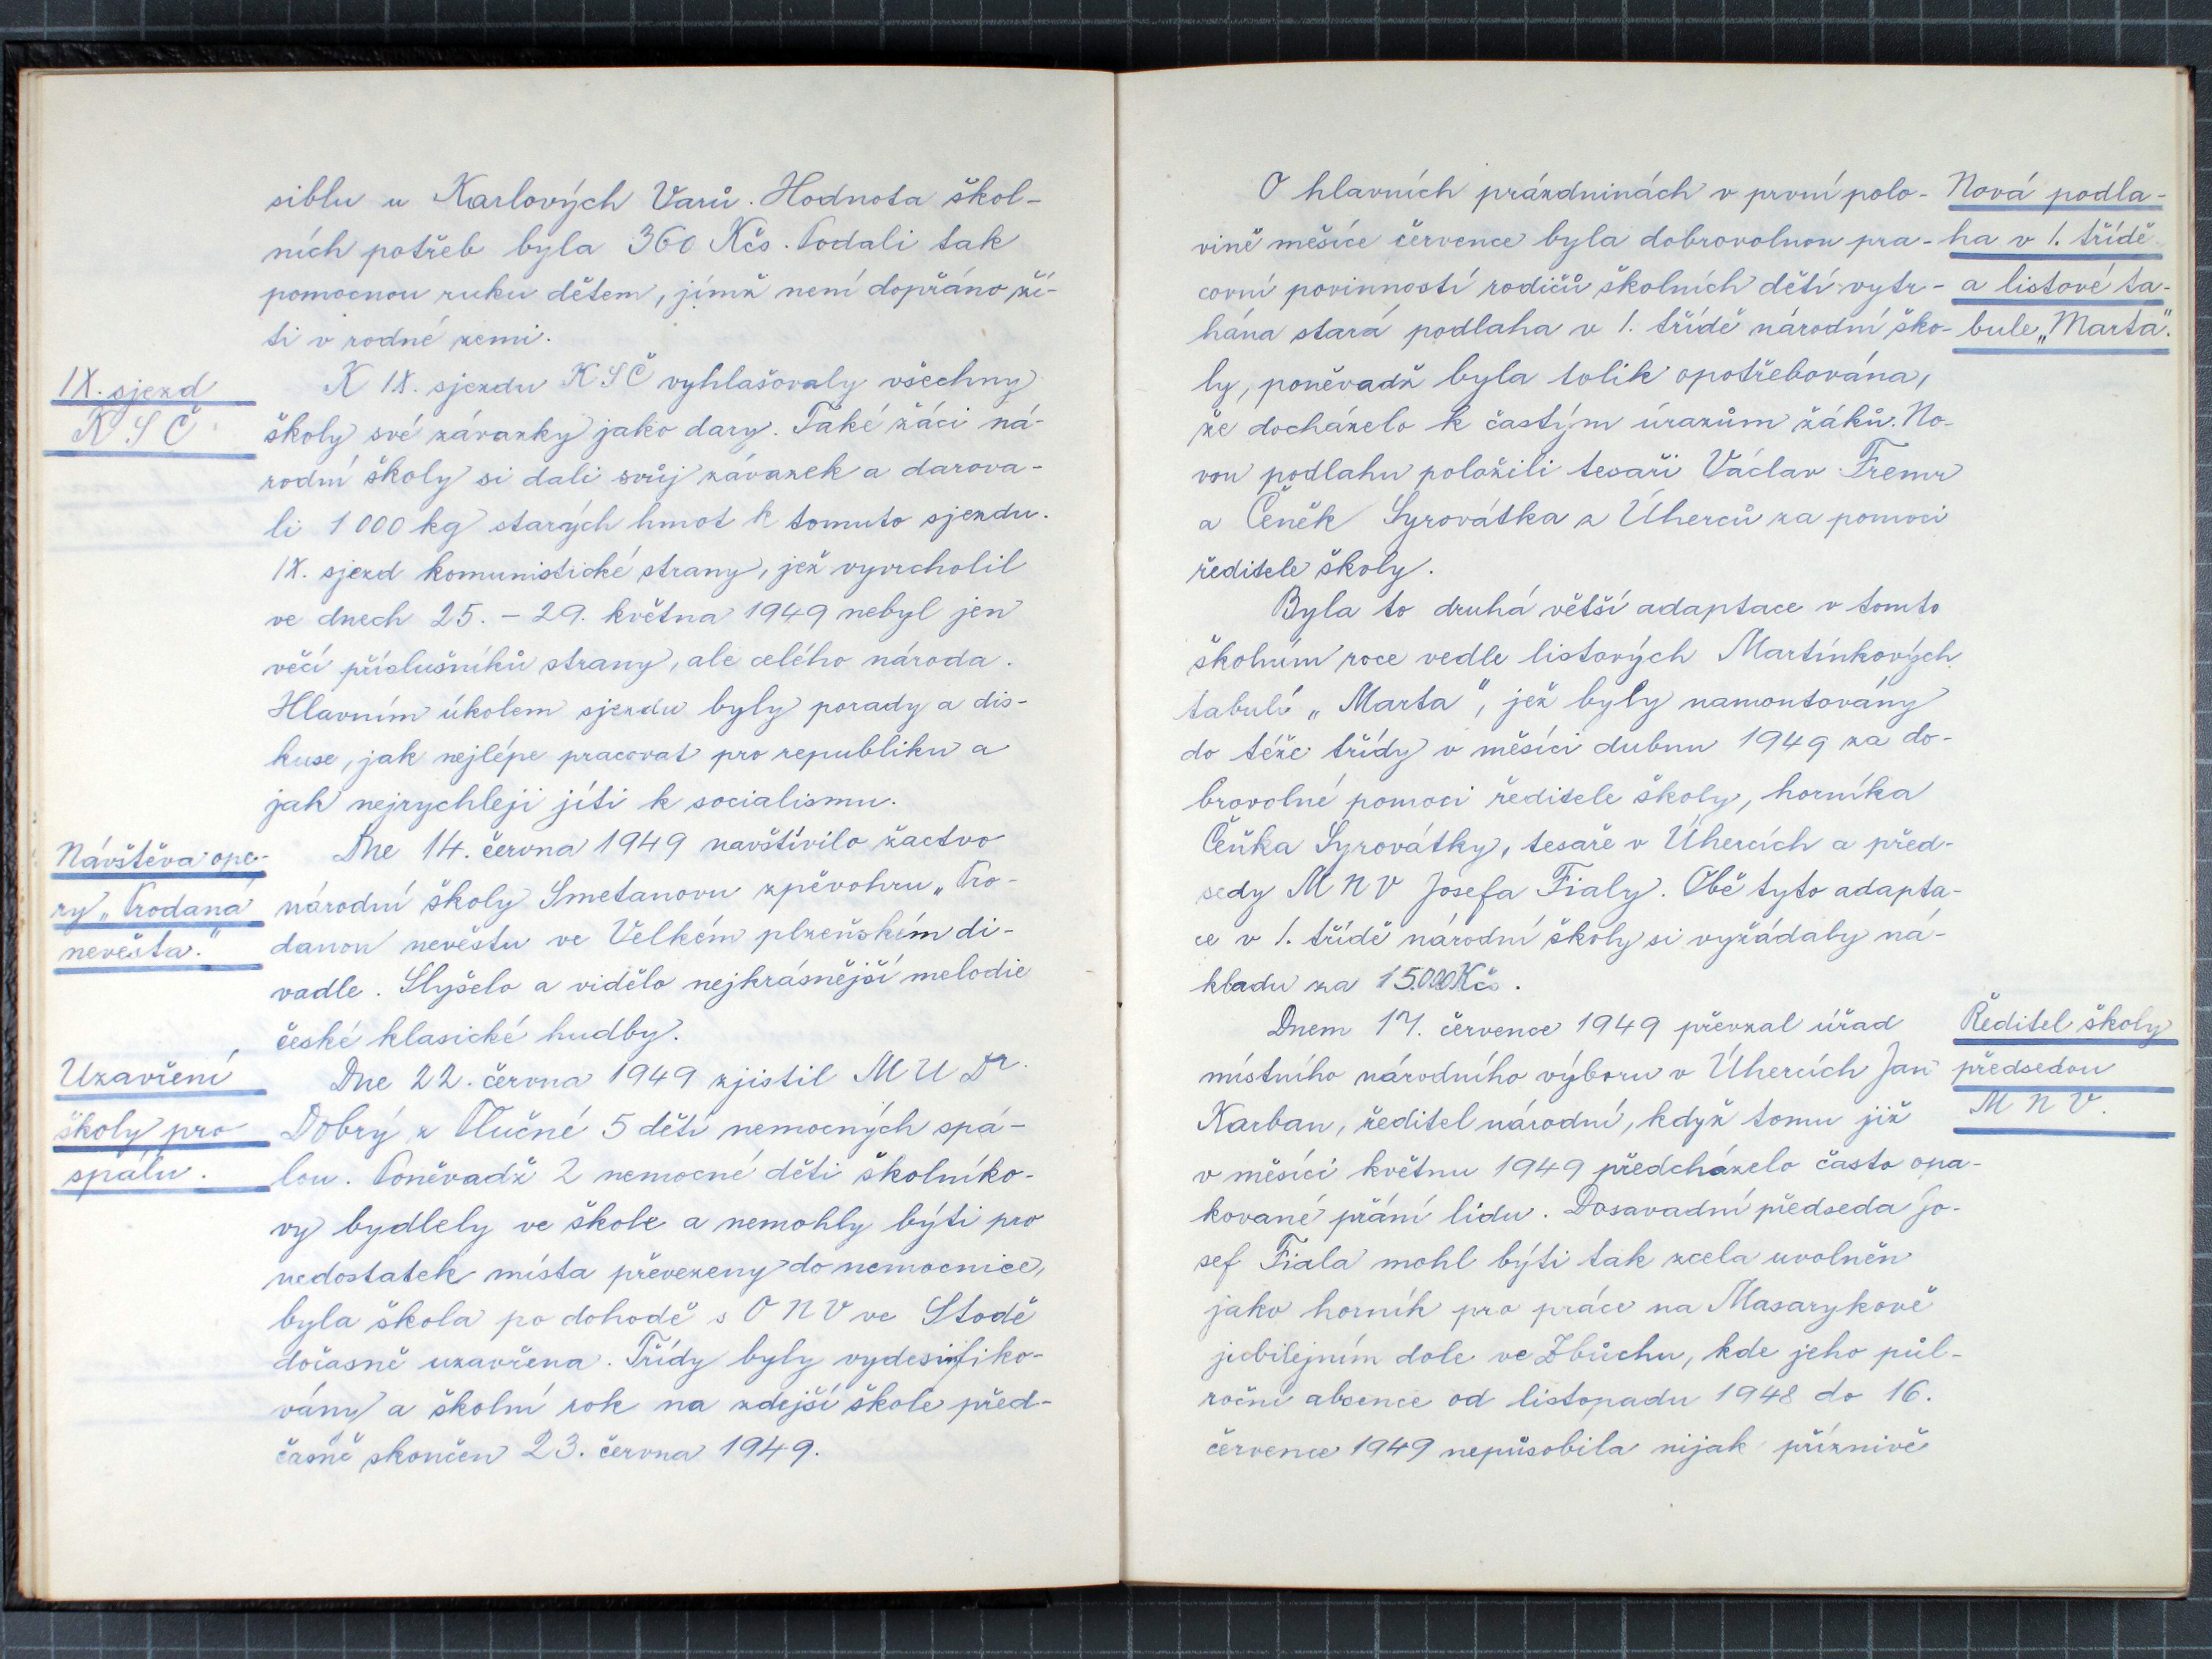 siblu u Karlových Varů. Hodnota škol-
ních potřeb byla 360 Kčs. Podali tak
pomocnou ruku dětem, jímž není dopřáno ží-
ti v rodné zemi.
IX. sjezd
K S Č
K IX. sjezdu KSČ vyhlašovaly všechny
školy své závazky jako dary. Také žáci ná-
rodní školy si dali svůj závazek a darova-
li 1000 kg starých hmot k tomuto sjezdu.
IX. sjezd komunistické strany, jež vyvrcholil
ve dnech 25. - 29. května 1949 nebyl jen
věcí příslušníků strany, ale celého národa.
Hlavním úkolem sjezdu byly porady a dis-
kuse, jak nejlépe pracovat pro republiku a
jak nejrychleji jíti k socialismu.
Návštěva ope-
ry „Prodaná
nevěsta."
Dne 14. června 1949 navštívilo žactvo
národní školy Smetanovu zpěvohru „Pro-
danou nevěstu ve Velkém plzeňském di-
vadle. Slyšelo a vidělo nejkrásnější melodie
české klasické hudby.
Uzavření
školy pro
spálu.
Dne 22. června 1949 zjistil MUDr.
Dobrý z Tlučné 5 dětí nemocných spá-
lou. Poněvadž 2 nemocné děti školníko-
vy bydlely ve škole a nemohly býti pro
nedostatek místa převezeny do nemocnice,
byla škola po dohodě s ONV ve Stodě
dočasně uzavřena. Třídy byly vydesinfiko-
vány a školní rok na zdejší škole před-
časně skončen 23. června 1949.
O hlavních prázdninách v první polo-
vině měsíce července byla dobrovolnou pra-
covní povinností rodičů školních dětí vytr-
hána stará podlaha v 1. třídě národní ško-
ly, poněvadž byla tolik opotřebována,
že docházelo k častým úrazům žáků. No-
vou podlahu položili tesaři Václav Fremr
a Čeněk Syrovátka z Úherců za pomoci
ředitele školy.
Nová podla-
ha v 1. třídě
a listové ta-
bule „Marta".
Byla to druhá větší adaptace v tomto
školním roce vedle listových Martínkových
tabulí „Marta", jež byly namontovány
do téže třídy v měsíci dubnu 1949 za do-
brovolné pomoci ředitele školy, horníka
Čeňka Syrovátky, tesaře v Úhercích a před-
sedy MNV Josefa Fialy. Obě tyto adapta-
ce v 1. třídě národní školy si vyžádaly ná-
kladu za 15.000 Kčs.
Ředitel školy
předsedou
MNV.
Dnem 17. července 1949 převzal úřad
místního národního výboru v Úhercích Jan
Karban, ředitel národní, když tomu již
v měsíci květnu 1949 předcházelo často opa-
kované přání lidu. Dosavadní předseda Jo-
sef Fiala mohl býti tak zcela uvolněn
jako horník pro práce na Masarykově
jubilejním dole ve Zbůchu, kde jeho půl-
roční absence od listopadu 1948 do 16.
července 1949 nepůsobila nijak příznivě